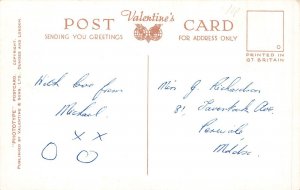 Valentine's
POST CARD
SENDING YOU GREETINGS
FOR ADDRESS ONLY
PRINTED IN
GT BRITAIN
"PHOTOTYPE" POSTCARD. COPYRIGHT
PUBLISHED BY VALENTINE & SONS, LTD. DUNDEE AND LONDON
With love from
Michael.
X X
O O
Miss J. Richardson
81, Tavistock Ave,
Perivale,
Middx.